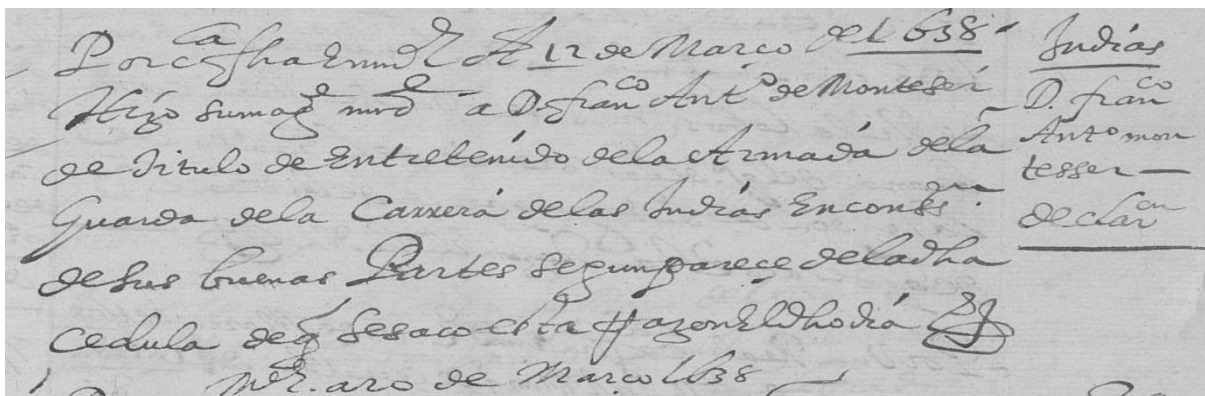 Por c^a fha En md^d A 12 de Março de 1638
Hizo su mag^d mrd a D. fran^co Ant^o de Monteser
de Titulo de Entretenido de la Armada de la
Guarda de la Carrera de las Indias En cons^on
de sus buenas Partes segun parece de la dha
Cedula de q se saco esta Razon El dho dia
de Março 1638
Indias
D. fran^co
Ant^o mon
tesser —
declar^on